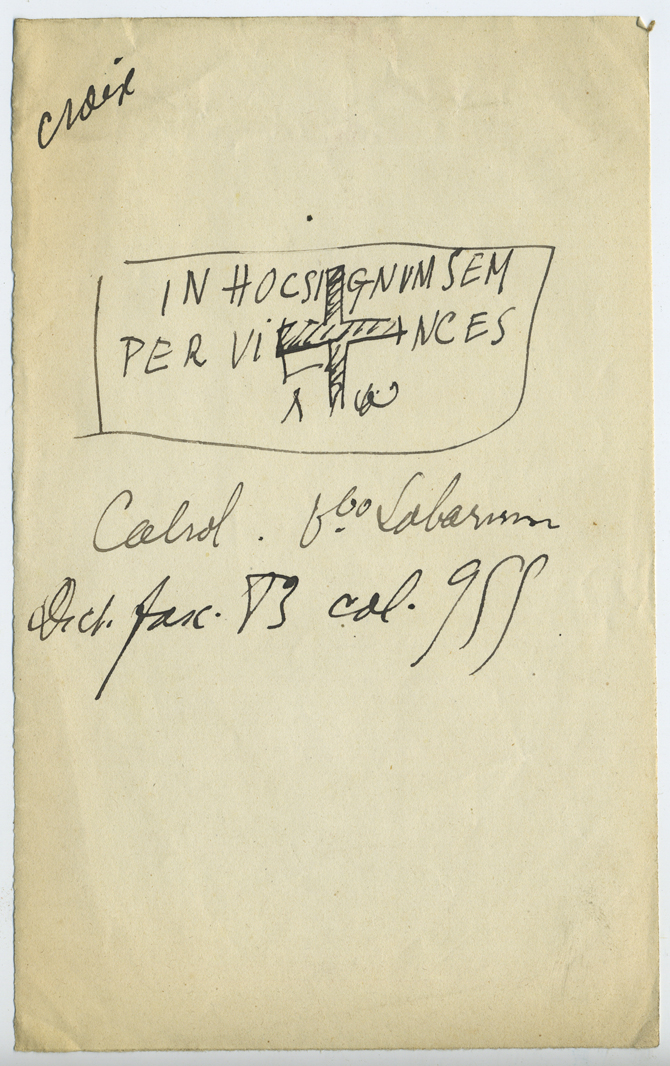 croix
IN HOC SIGNUM SEM
PER VINCES
Λ ω
Cabrol. Vbo Labarum
Dict. fasc. 83 col. 955